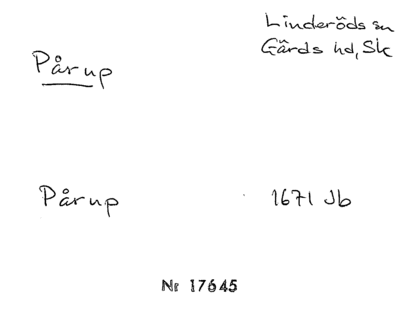 Linderöds sn
Pårup
Gärds hd, Sk
Pårup 1671 Jb
Nr 17645